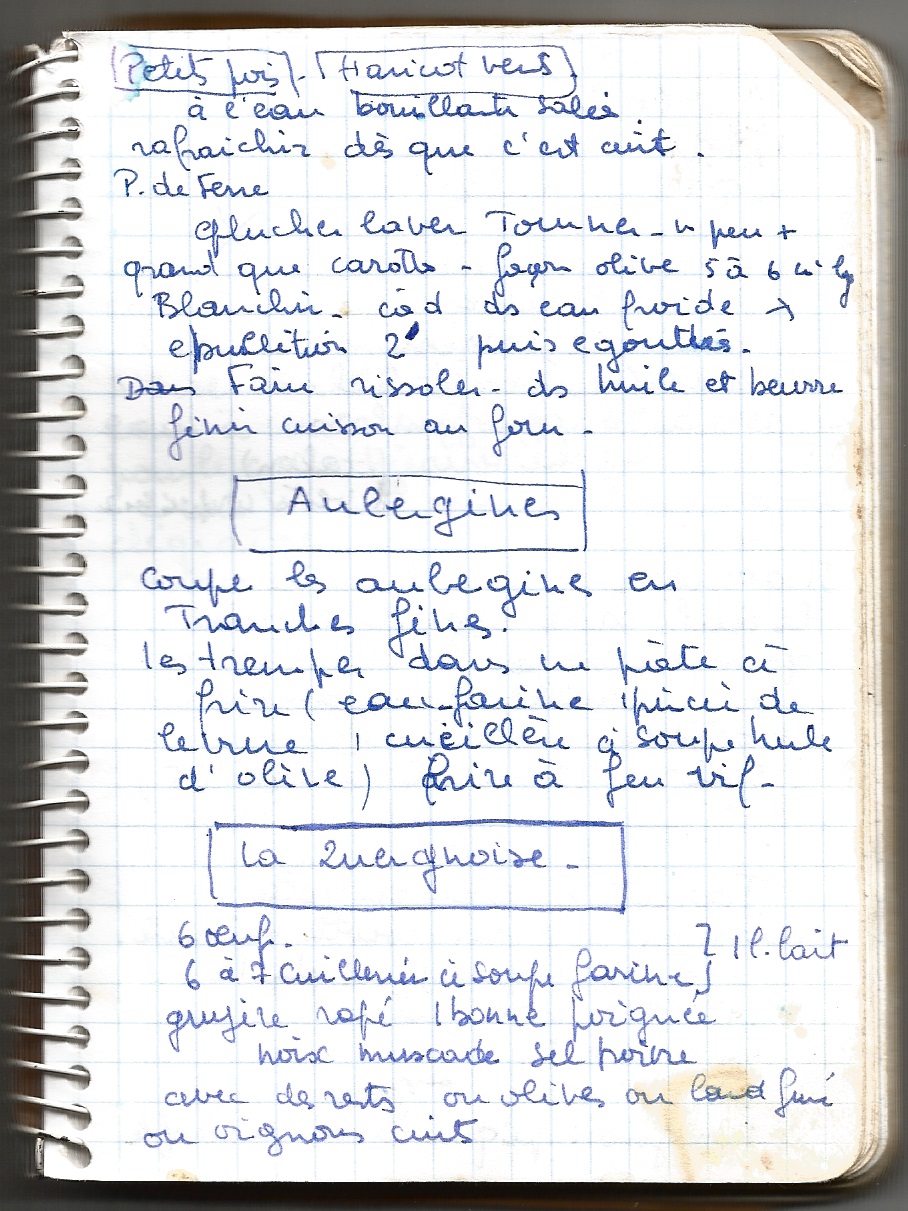 Petits pois - Haricot verts
à l'eau bouillante salée.
rafraichir dès que c'est cuit.
P. de Terre
eplucher laver Tourner - un peu +
grand que carotte - façon olive 5 à 6 cm
Blanchir - càd ds eau froide →
ebullition 2' puis egouttés.
Dans Faire rissoler - ds huile et beurre
finir cuisson au four -
Aubergines
Coupe les aubegine en
Tranches fines.
les tremper dans une pâte à
frire (eau-farine 1 pincée de
levure 1 cueillère à soupe huile
d'olive) frire à feu vif -
la Quergnoise -
6 œufs.
] 1 l. lait
6 à 7 Cuillerées à soupe farine
gruyère rapé 1 bonne poignée
noix muscade sel poivre
avec des rests ou olives ou lard fumé
ou oignons cuits